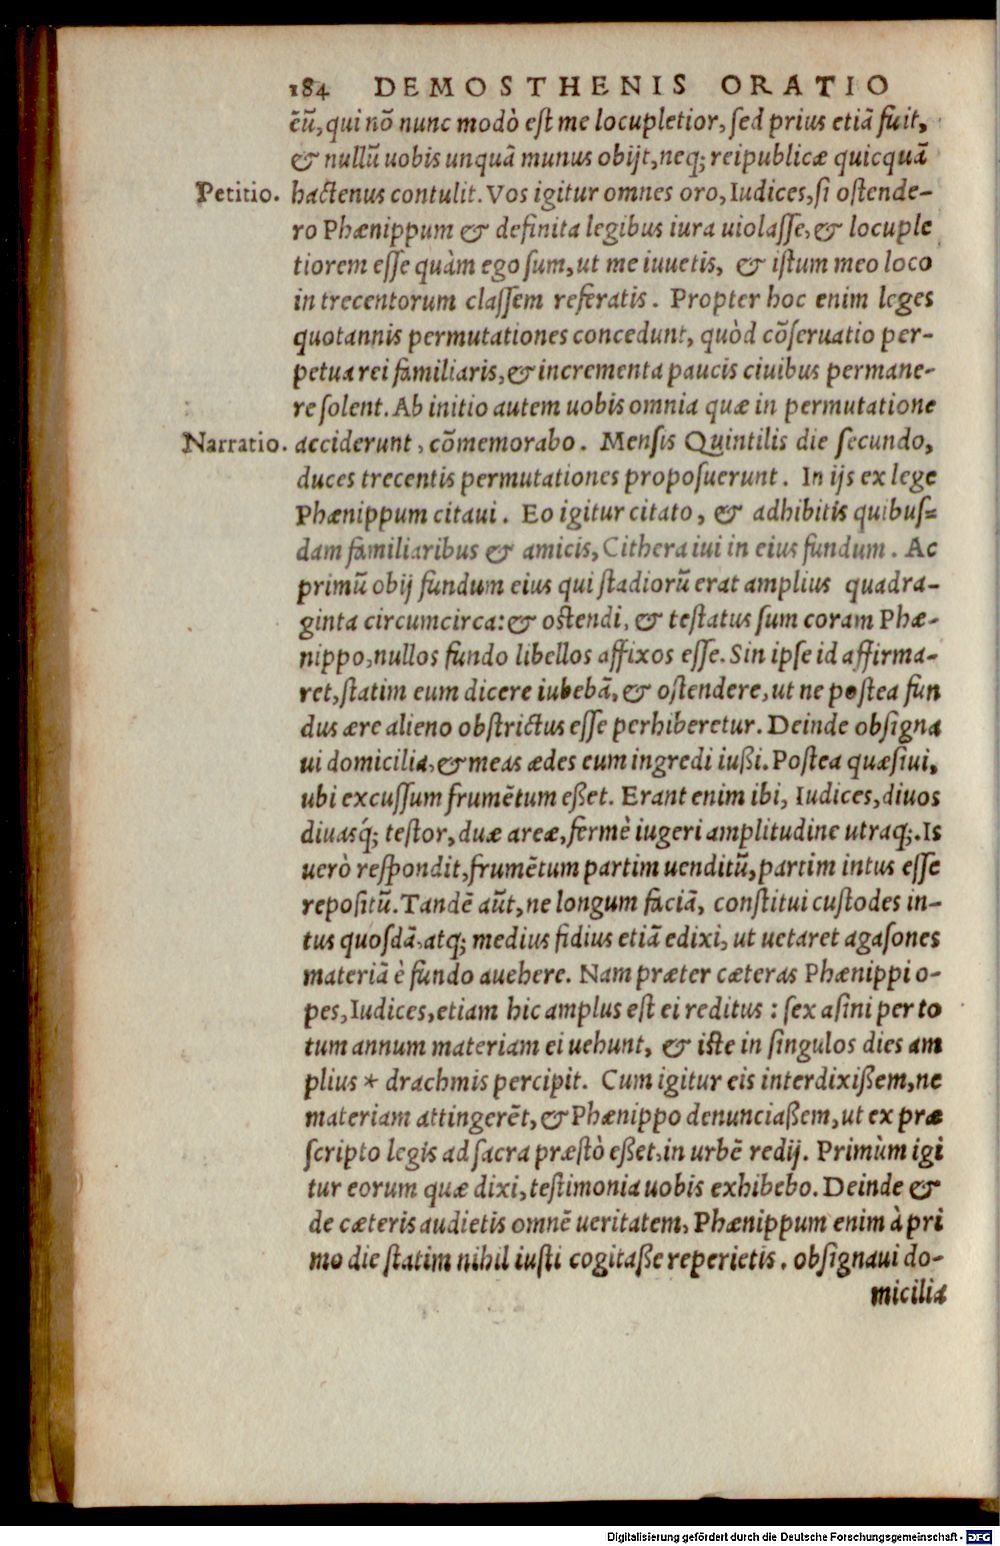 184 DEMOSTHENIS ORATIO
ẽũ, qui nõ nunc modò est me locupletior, sed prius etiã fuit,
& nullũ uobis unquã munus obijt, neq; reipublicæ quicquã
Petitio. hactenus contulit. Vos igitur omnes oro, Iudices, si ostende-
ro Phænippum & definita legibus iura uiolasse, & locuple
tiorem esse quàm ego sum, ut me iuuetis, & istum meo loco
in trecentorum classem referatis. Propter hoc enim leges
quotannis permutationes concedunt, quòd cõseruatio per-
petua rei familiaris, & incrementa paucis ciuibus permane-
re solent. Ab initio autem uobis omnia quæ in permutatione
Narratio. acciderunt, cõmemorabo. Mensis Quintilis die secundo,
duces trecentis permutationes proposuerunt. In ijs ex lege
Phænippum citaui. Eo igitur citato, & adhibitis quibus=
dam familiaribus & amicis, Cithera iui in eius fundum. Ac
primũ obij fundum eius qui stadiorũ erat amplius quadra-
ginta circumcirca: & ostendi, & testatus sum coram Phæ-
nippo, nullos fundo libellos affixos esse. Sin ipse id affirma-
ret, statim eum dicere iubebã, & ostendere, ut ne postea fun
dus ære alieno obstrictus esse perhiberetur. Deinde obsigna
ui domicilia, & meas ædes eum ingredi iußi. Postea quæsiui,
ubi excussum frumẽtum eßet. Erant enim ibi, Iudices, diuos
diuasq́; testor, duæ areæ, fermè iugeri amplitudine utraq;. Is
uerò respondit, frumẽtum partim uenditũ, partim intus esse
repositũ. Tandẽ aũt, ne longum faciã, constitui custodes in-
tus quosdã, atq; medius fidius etiã edixi, ut uetaret agasones
materiã è fundo auehere. Nam præter cæteras Phænippi o-
pes, Iudices, etiam hic amplus est ei reditus: sex asini per to
tum annum materiam ei uehunt, & iste in singulos dies am
plius * drachmis percipit. Cum igitur eis interdixißem, ne
materiam attingerẽt, & Phænippo denunciaßem, ut ex præ
scripto legis ad sacra præstò eßet, in urbẽ redij. Primùm igi
tur eorum quæ dixi, testimonia uobis exhibebo. Deinde &
de cæteris audietis omnẽ ueritatem, Phænippum enim à pri
mo die statim nihil iusti cogitaße reperietis. obsignaui do-
micilia
Digitalisierung gefördert durch die Deutsche Forschungsgemeinschaft - DFG